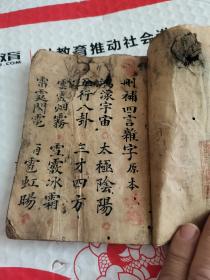 教育推动社会进
教育
刪補四言雜字原本
鴻濛宇宙 太極陰陽
五行八卦 三才四方
雲霞烟霧 雪霰冰霜
雷霆閃電 雨雹虹暘